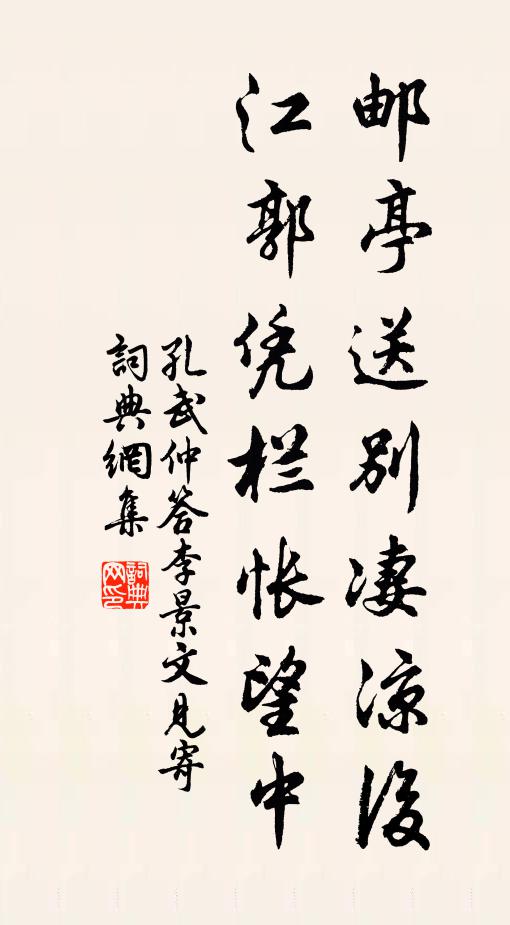 邮亭送别凄凉後
江郭凭栏怅望中
孔武仲答李景文見寄
詞典網集
詞典
网印